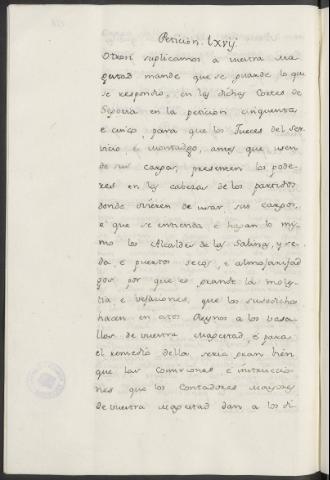 Peticion. lxvij
Otrosi suplicamos a vuestra ma
gestad mande que se guarde lo que
se respondio, en las dichas Cortes de
Segovia en la peticion cinquenta
e cinco, para que los Jueces del ser
vicio, e montadgo, antes que usen
de sus cargos, presenten los pode
res en las cabezas de los partidos
donde ovieren de usar sus cargos,
e que se entienda e hagan lo mis
mo los Alcaldes de las Salinas, y se
da e puertos secos, e almojarifad
gos por que es grande la moles
tia e vejaciones, que los susodichos
hacen en estos Reynos a los vasa
llos de vuestra Magestad, e para
el remedio della seria gran bien
que las Comisiones e instruccio
nes que los Contadores Mayores
de vuestra Magestad dan a los di